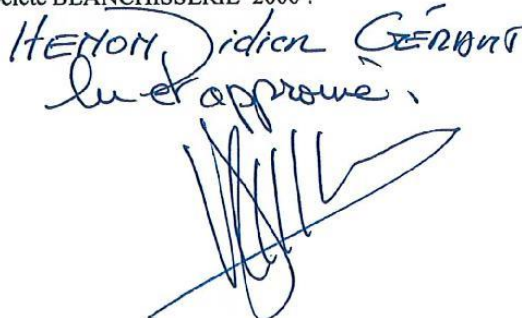 ociété BLANCHISSERIE 2000 :
HEMON Didier GÉRANT
lu et approuvé.